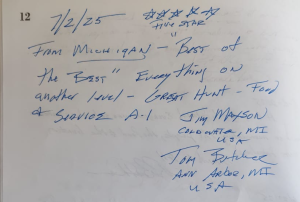 12
7/2/25 ☆☆☆☆☆
"FIVE STAR"
FROM MICHIGAN - "BEST of
the BEST" EveryThing ON
another level - GREAT HUNT - FOOD
& SERVICE A-1 Jim
COLDWATER, MI
USA
Tom
ANN ARBOR, MI
USA